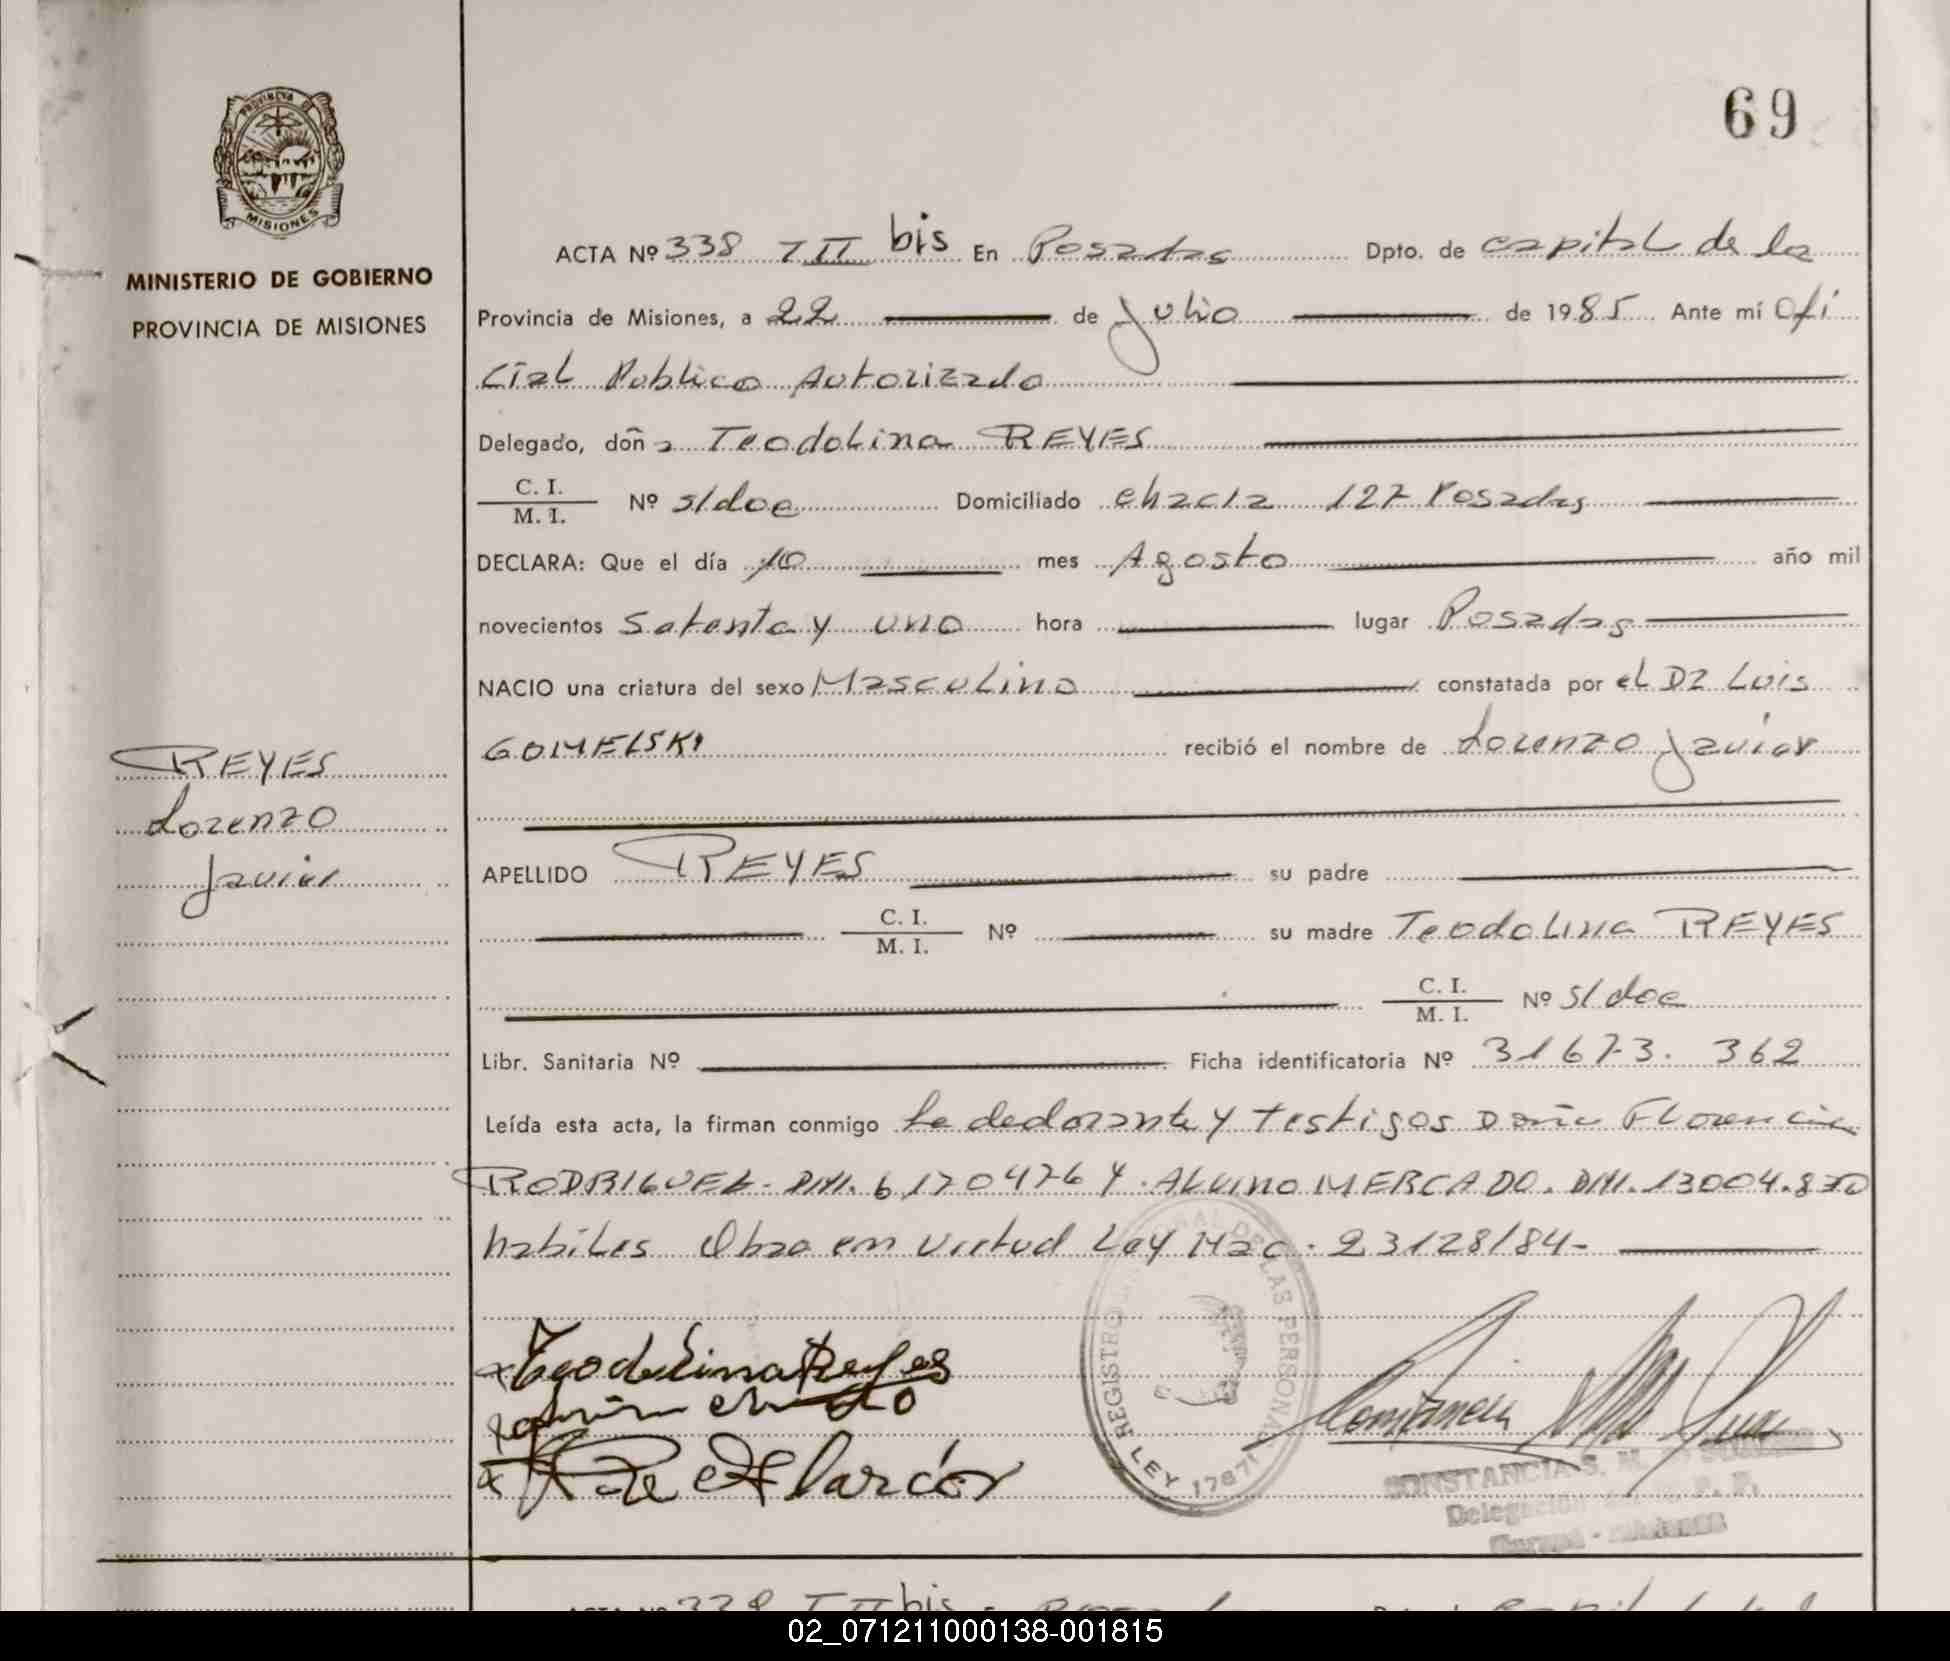 69
PROVINCIA DE
MISIONES
MINISTERIO DE GOBIERNO
PROVINCIA DE MISIONES
ACTA Nº 338 T II bis En Posadas Dpto. de capital de la
Provincia de Misiones, a 22 de Julio de 1985. Ante mí Ofi
cial Publico Autorizado
Delegado, doña Teodolina REYES
C. I.
M. I. Nº s/doc Domiciliado chacra 127 Posadas
DECLARA: Que el día 10 mes Agosto año mil
novecientos Setenta y uno hora lugar Posadas
NACIO una criatura del sexo Masculino constatada por el Dr Luis
GOMELSKI recibió el nombre de Lorenzo Javier
REYES
Lorenzo
Javier
APELLIDO REYES su padre
C. I.
M. I. Nº su madre Teodolina REYES
C. I.
M. I. Nº s/doc
Libr. Sanitaria Nº Ficha identificatoria Nº 31673. 362
Leída esta acta, la firman conmigo la declarante y testigos Doña Florencia
RODRIGUEZ. DNI. 6170476 Y ALVINO MERCADO. DNI. 13004.870
habiles Obra en virtud Ley Nac. 23128/84-
x Teodolina Reyes
REGISTRO DE LAS PERSONAS
LEY 17671
CONSTANCIA S. M.
ACTA Nº 338 T II bis
02_071211000138-001815